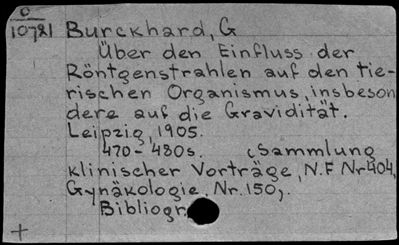 O
10721 Burckhard, G
Über den Einfluss der
Röntgenstrahlen auf den tie-
rischen Organismus, insbeson
dere auf die Gravidität.
Leipzig, 1905.
470-480s. (Sammlung
klinischer Vorträge, N.F Nr404,
Gynäkologie, Nr.150,.
Bibliogr.